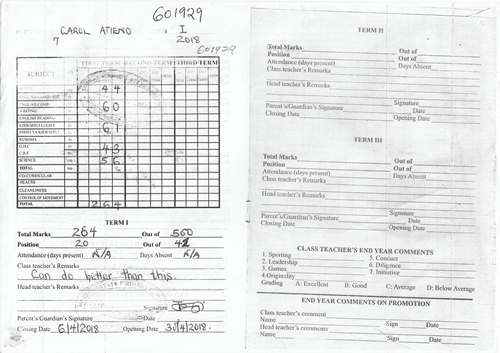 601929
CAROL ATIENO I
7 2018
601929
SUBJECT FIRST TERM SECOND TERM THIRD TERM
44
ENGLISH LANGUAGE
ENGLISH COMP. 60
WRITING
ENGLISH READING
61
KUSOMA
G.H.C 43
C.R.E
SCIENCE 56
TOTAL
CO.CURRICULAR
HEALTH
CLEANLINESS
CONTROL OF MOVEMENT
TOTAL 264
TERM I
Total Marks 264 Out of 500
Position 20 Out of 42
Attendance (days present) N/A Days Absent N/A
Class teacher's Remarks
Can do better than this.
Head teacher's Remarks
Signature
Parent's/Guardian's Signature
Closing Date 6/4/2018 Opening Date 30/4/2018.
TERM II
Total Marks Out of
Position Out of
Attendance (days present) Days Absent
Class teacher's Remarks
Head teacher's Remarks
Signature
Parent's/Guardian's Signature Date
Closing Date Opening Date
TERM III
Total Marks Out of
Position Out of
Attendance (days present) Days Absent
Class teacher's Remarks
Head teacher's Remarks
Signature
Parent's/Guardian's Signature Date
Closing Date Opening Date
CLASS TEACHER'S END YEAR COMMENTS
1. Sporting 5. Conduct
2. Leadership 6. Diligence
3. Games 7. Initiative
4. Originality
Grading A: Excellent B: Good C; Average D: Below Average
END YEAR COMMENTS ON PROMOTION
Class teacher's comment
Name Sign Date
Head teacher's comments
Name Sign Date